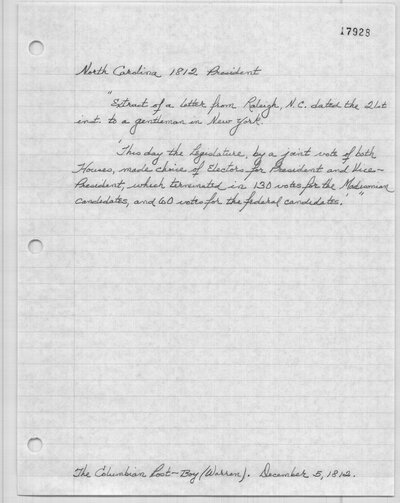 17928
North Carolina 1812 President
"Extract of a letter from Raleigh, N.C. dated the 21st
inst. to a gentleman in New York.
'This day the Legislature, by a joint vote of both
Houses, made choice of Electors for President and Vice-
President, which terminated in 130 votes for the Madisonian
candidates, and 60 votes for the federal candidates.'"
The Columbian Post-Boy (Warren). December 5, 1812.